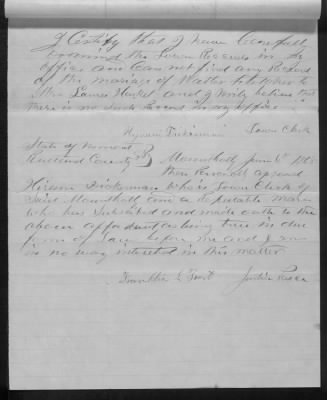 I Certify that I have Carefully
Examined the Town Records in the
office and Can not find any Record
of the mariage of Walter to
Mrs Laura and I verily believe that
there is no such Record in my office
Town Clerk
State of Vermont
Rutland County SS
then Personal apeared
Hiram Dickerman who is Town Clerk of
Said and a reputable man
who has Subscribed and made oath to the
above affidavit as being true in due
form of law before me and I am
in no way interested in this matter
Franklin